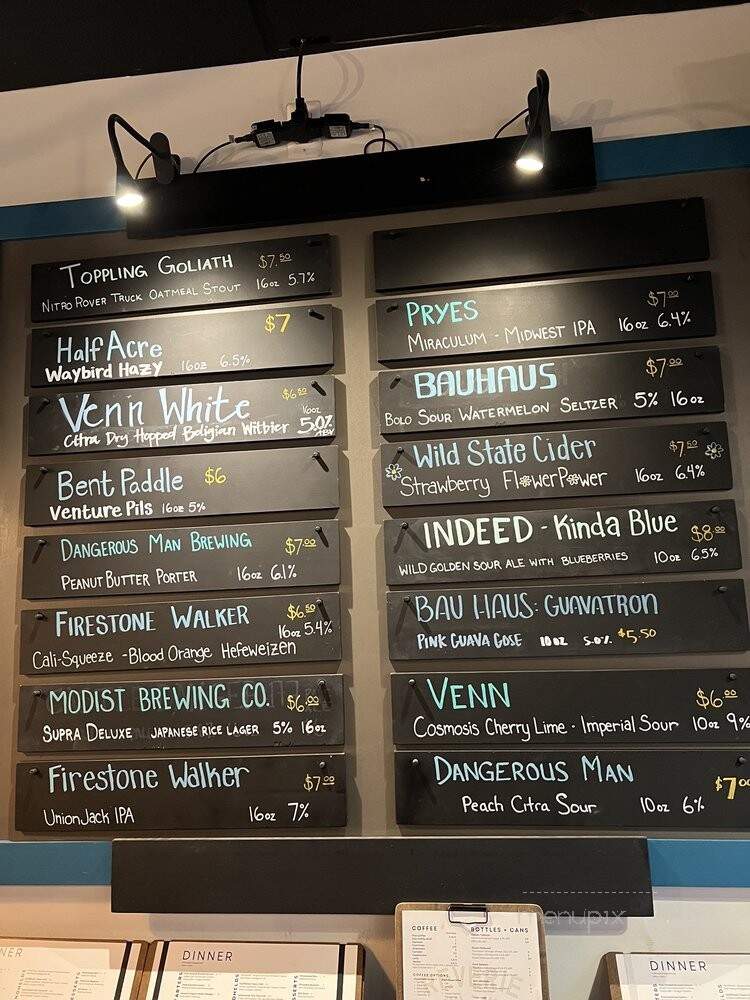 TOPPLING GOLIATH $7.50
NITRO ROVER TRUCK OATMEAL STOUT 16oz 5.7%
Half Acre $7
Waybird Hazy 16oz 6.5%
Venn White $6.50
Citra Dry Hopped Beligian Witbier 16oz 5.0% ABV
Bent Paddle $6
Venture Pils 16oz 5%
DANGEROUS MAN BREWING $7.00
PEANUT BUTTER PORTER 16oz 6.1%
FIRESTONE WALKER $6.50
Cali-Squeeze - Blood Orange Hefeweizen 16oz 5.4%
MODIST BREWING CO. $6.00
SUPRA DELUXE JAPANESE RICE LAGER 5% 16oz
Firestone Walker $7.00
Union Jack IPA 16oz 7%
PRYES $7.00
MIRACULUM - MIDWEST IPA 16oz 6.4%
BAUHAUS $7.00
BOLO SOUR WATERMELON SELTZER 5% 16oz
Wild State Cider $7.50
Strawberry FlowerPower 16oz 6.4%
INDEED - Kinda Blue $8.00
WILD GOLDEN SOUR ALE WITH BLUEBERRIES 10oz 6.5%
BAU HAUS: GUAVATRON
PINK GUAVA GOSE 10oz 5.0% $5.50
VENN $6.00
Cosmosis Cherry Lime - Imperial Sour 10oz 9%
DANGEROUS MAN $7.00
Peach Citra Sour 10oz 6%
menupix
COFFEE
BOTTLES + CANS
COFFEE OPTIONS
DINNER
DINNER